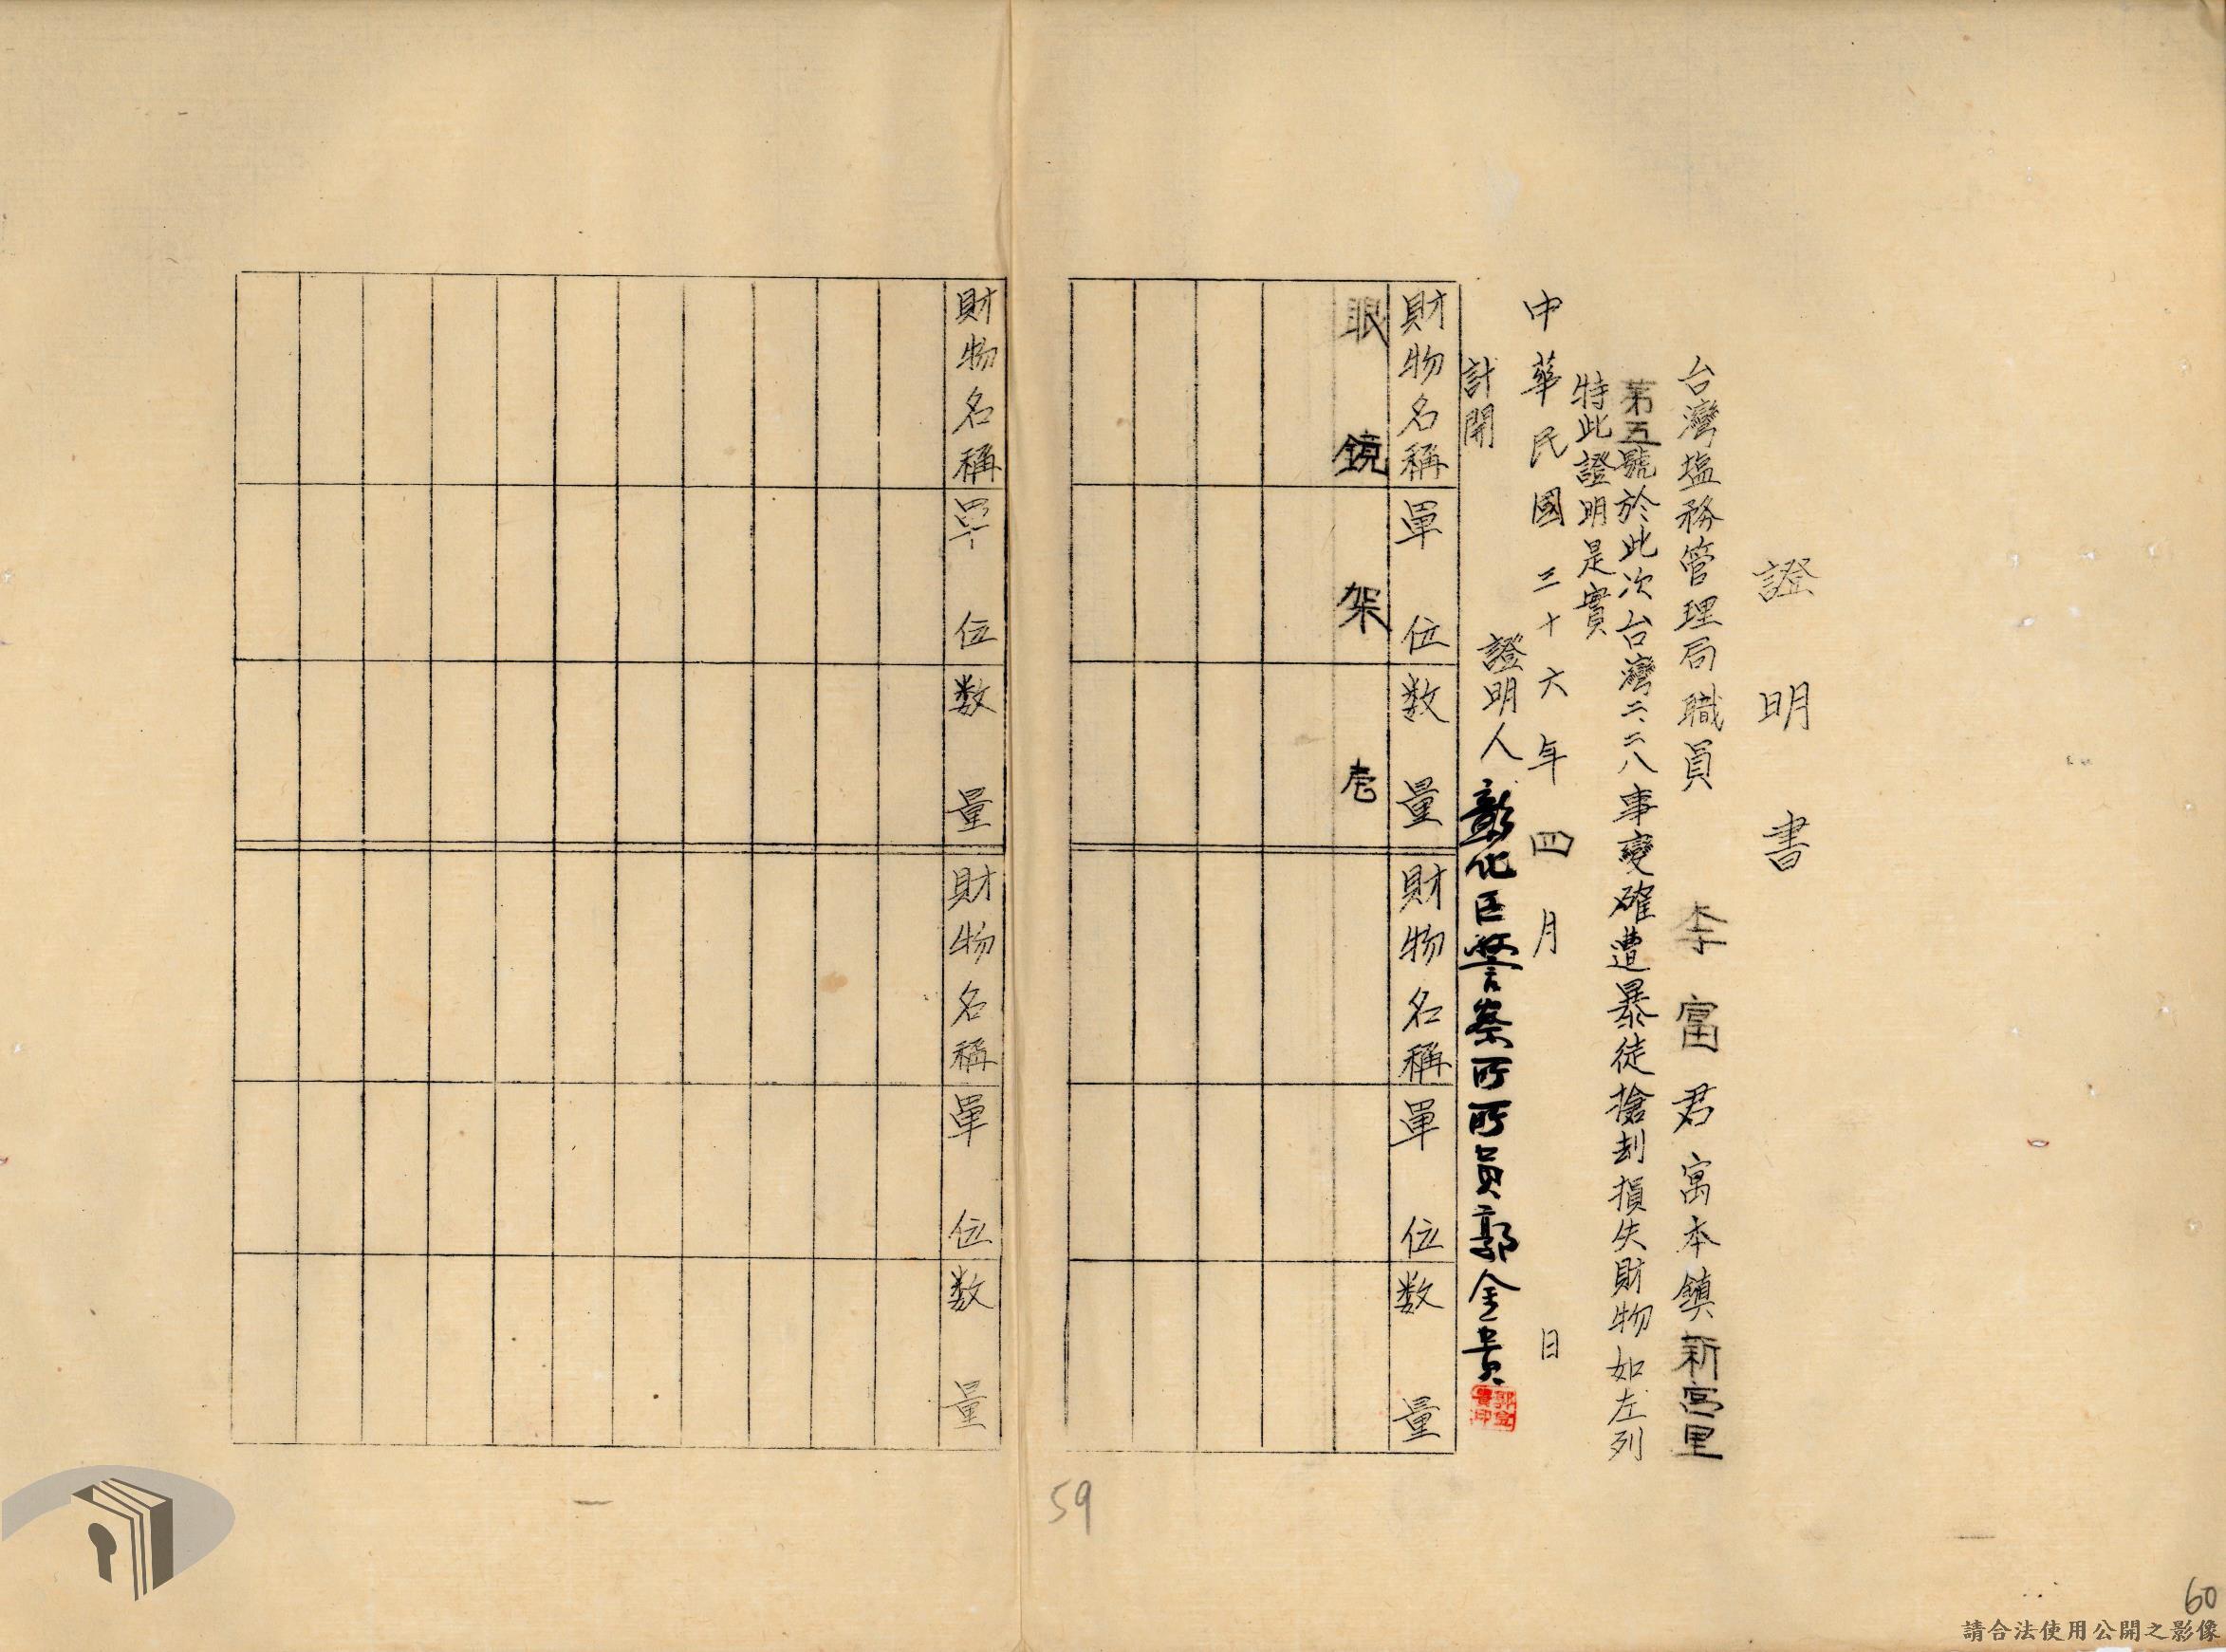 證明書
台灣塩務管理局職員李富君寓本鎮新宮里
第五號於此次台灣二、二八事變確遭暴徒搶刦損失財物如左列
特此證明是實
中華民國三十六年四月 日
證明人彰化區警察所所員郭金貴
計開
財物名稱 單位 数量 財物名稱 單位 数量
眼鏡架 壱
財物名稱 單位 数量 財物名稱 單位 数量
59
60
請合法使用公開之影像